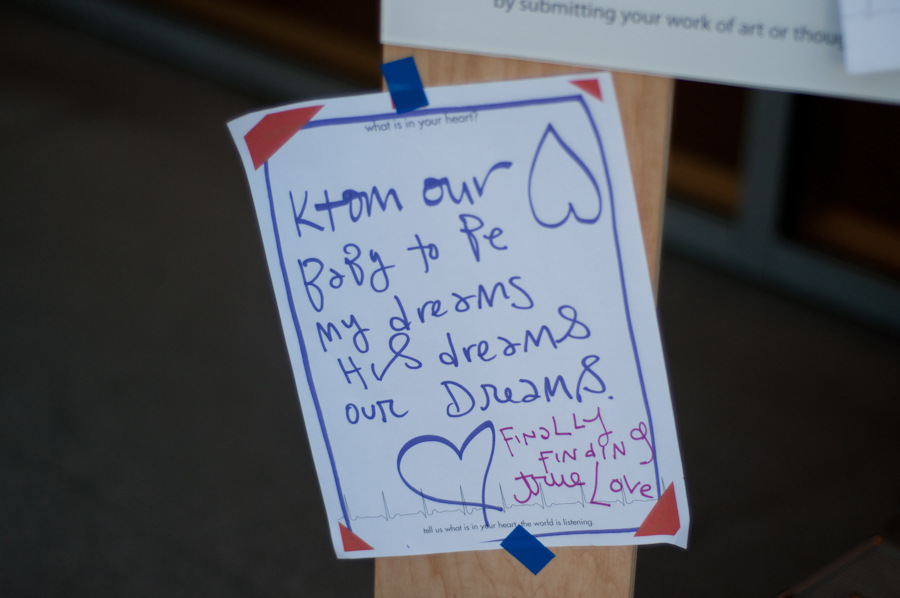 by submitting your work of art or thou
what is in your heart?
Ktom our
Baby to Be
my dreams
His dreams
our Dreams.
Finally
Finding
true Love
tell us what is in your heart, the world is listening.